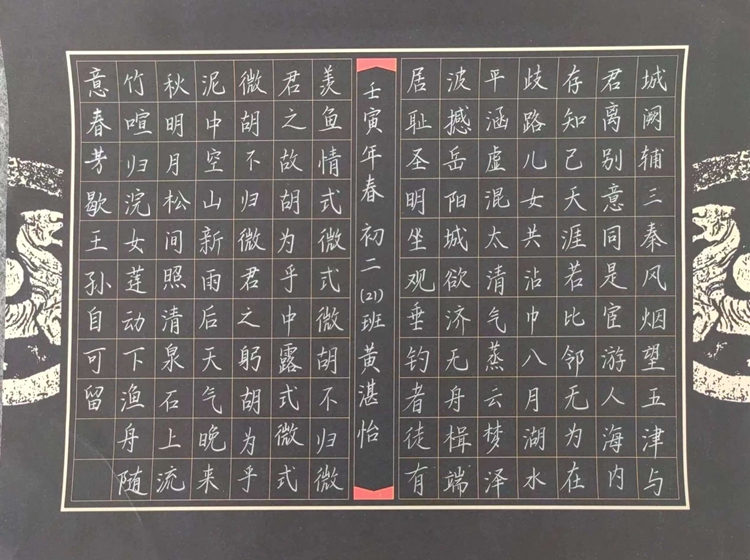 城阙辅三秦风烟望五津与
君离别意同是宦游人海内
存知己天涯若比邻无为在
歧路儿女共沾巾八月湖水
平涵虚混太清气蒸云梦泽
波撼岳阳城欲济无舟楫端
居耻圣明坐观垂钓者徒有
壬寅年春 初二(21)班 黄湛怡
羡鱼情式微式微胡不归微
君之故胡为乎中露式微式
微胡不归微君之躬胡为乎
泥中空山新雨后天气晚来
秋明月松间照清泉石上流
竹喧归浣女莲动下渔舟随
意春芳歇王孙自可留